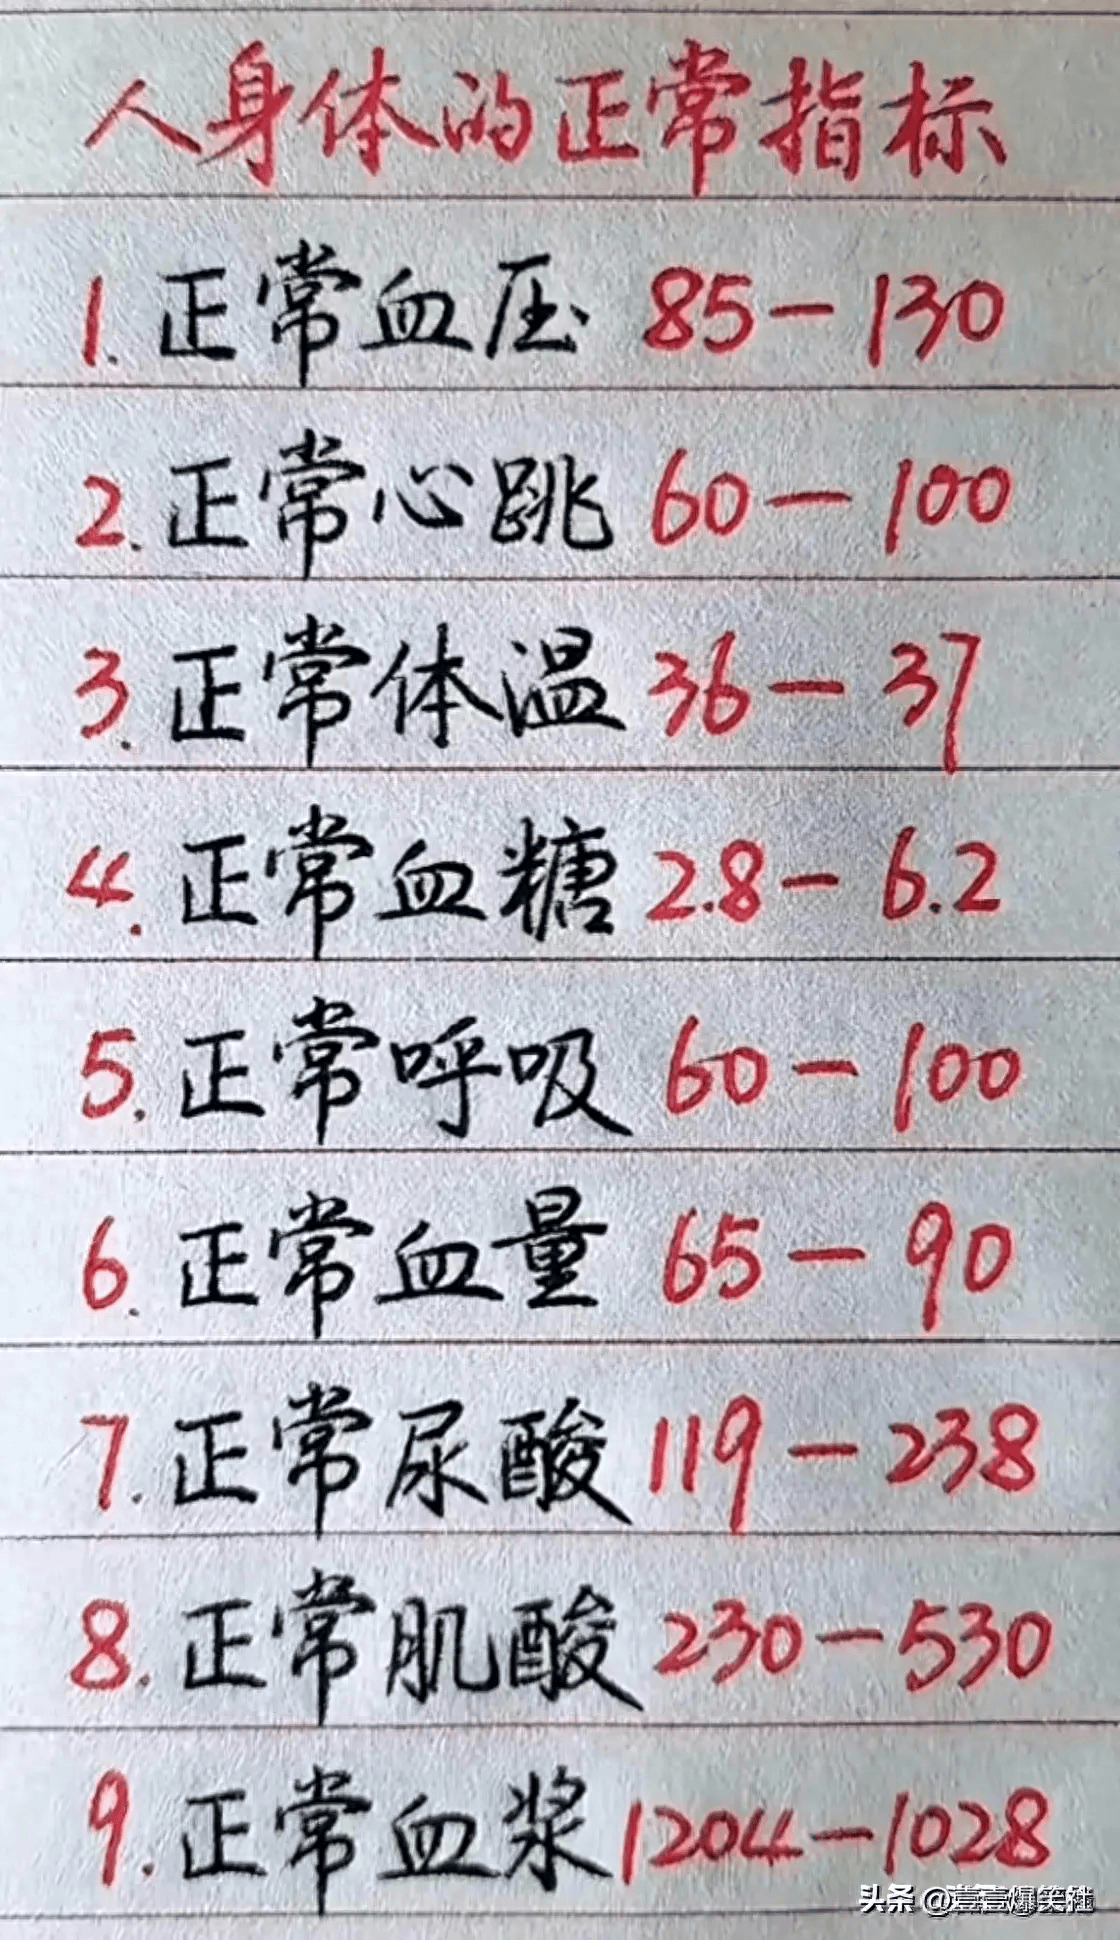 人身体的正常指标
1. 正常血压 85—130
2. 正常心跳 60—100
3. 正常体温 36—37
4. 正常血糖 2.8—6.2
5. 正常呼吸 60—100
6. 正常血量 65—90
7. 正常尿酸 119—238
8. 正常肌酸 230—530
9. 正常血浆 1204—1028
头条 @壹壹爆笑社